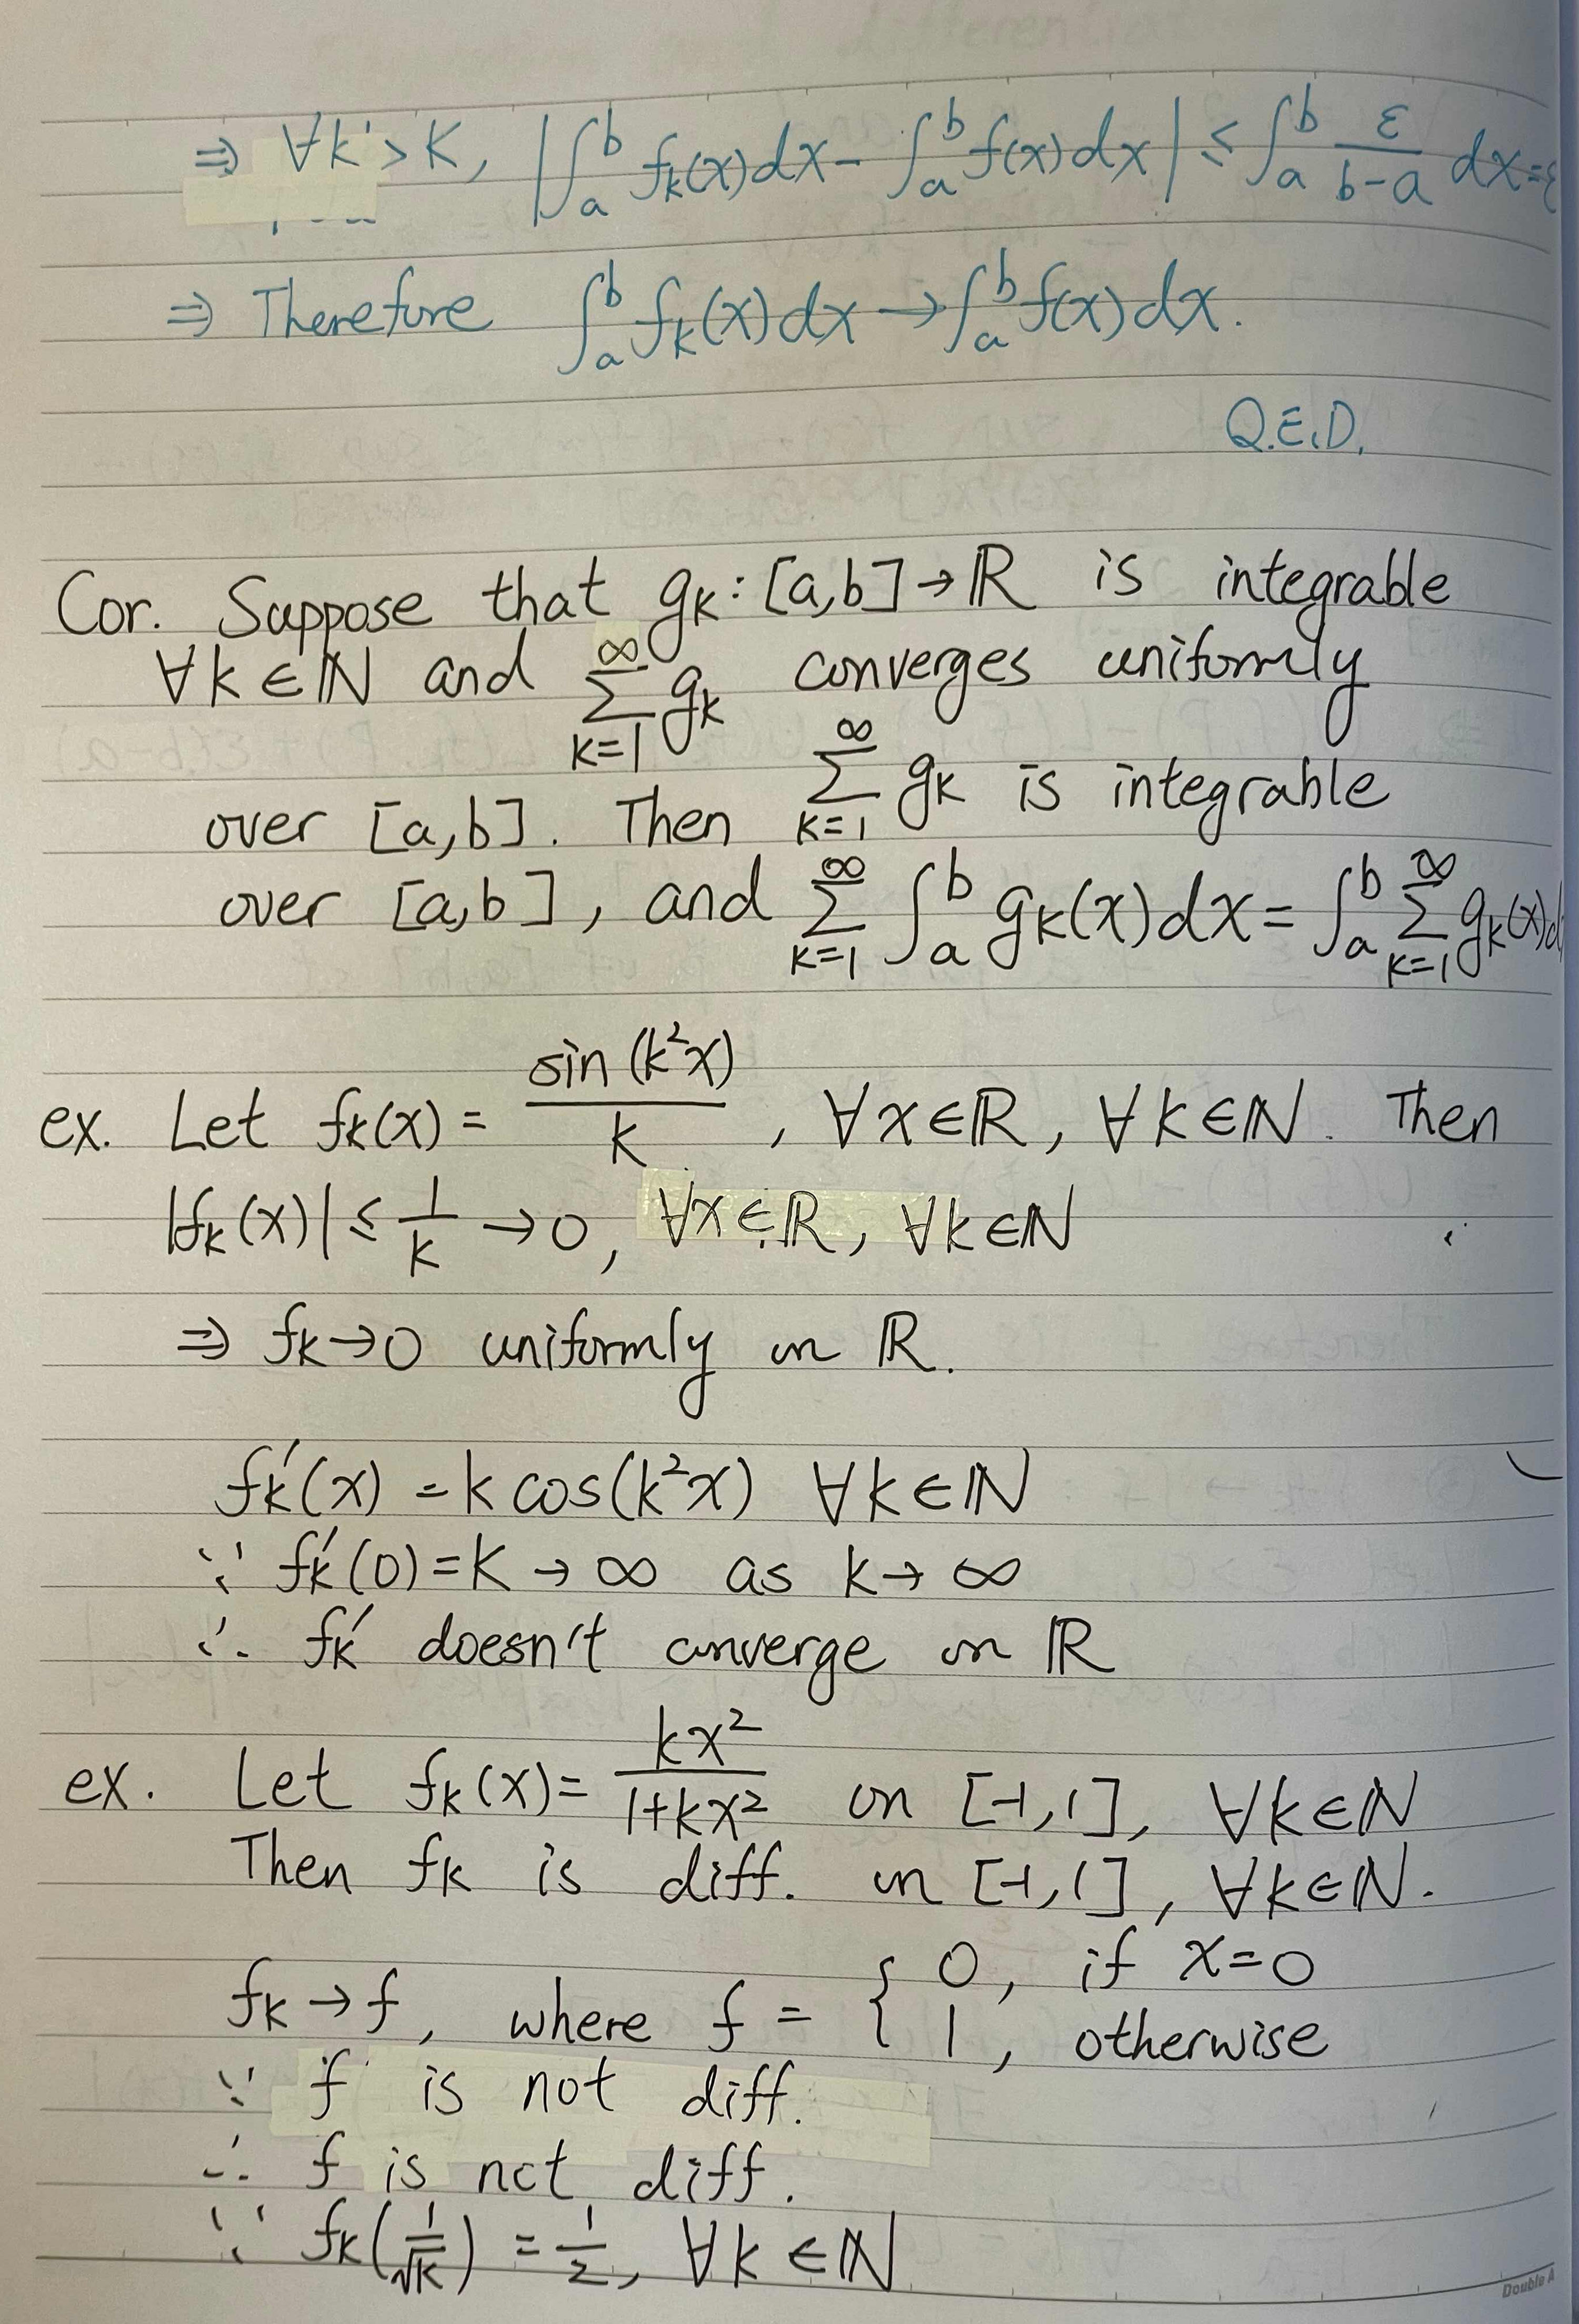 ⇒ ∀k > K, |∫_a^b f_k(x)dx - ∫_a^b f(x)dx| ≤ ∫_a^b ε/(b-a) dx = ε
⇒ Therefore ∫_a^b f_k(x)dx → ∫_a^b f(x)dx.
Q.E.D.
Cor. Suppose that g_k : [a,b] → ℝ is integrable
∀k ∈ ℕ and ∑_{k=1}^∞ g_k converges uniformly
over [a,b]. Then ∑_{k=1}^∞ g_k is integrable
over [a,b], and ∑_{k=1}^∞ ∫_a^b g_k(x)dx = ∫_a^b ∑_{k=1}^∞ g_k(x)d
ex. Let f_k(x) = sin(k²x)/k , ∀x∈ℝ, ∀k∈ℕ. Then
|f_k(x)| ≤ 1/k → 0, ∀x∈ℝ, ∀k∈ℕ
⇒ f_k → 0 uniformly on ℝ.
f_k'(x) = k cos(k²x) ∀k∈ℕ
∵ f_k'(0) = k → ∞ as k → ∞
∴ f_k' doesn't converge on ℝ
ex. Let f_k(x) = kx²/(1+kx²) on [-1,1], ∀k∈ℕ
Then f_k is diff. on [-1,1], ∀k∈ℕ.
f_k → f, where f = { 0, if x=0
1, otherwise
∵ f is not diff.
∴ f is not diff.
∵ f_k(1/√k) = 1/2, ∀k ∈ ℕ
Double A